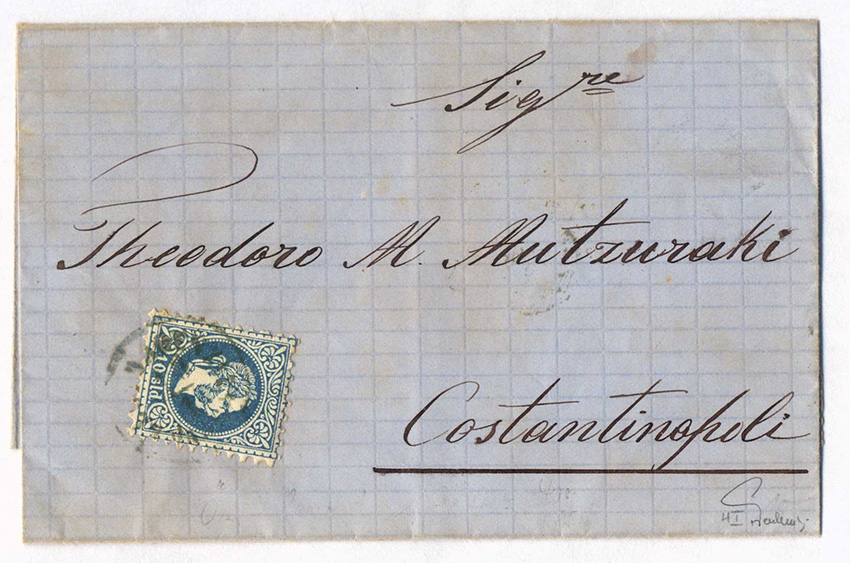 Sigre
Theodoro M. Mutzuraki
Costantinopoli
10 sld
4I